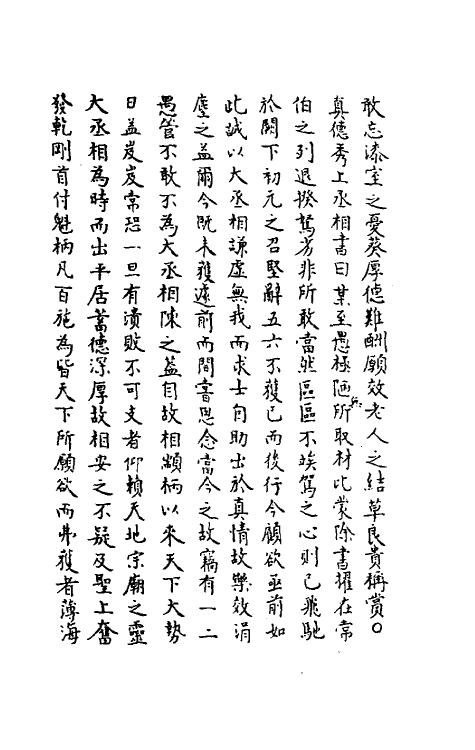 敢忘漆室之憂葵厚德難酬願效老人之結草良貴稱賞○
真德秀上丞相書曰某至愚極陋無所取材比蒙除書擢在常
伯之列退揆駑劣非所敢當然區區不竢駕之心則已飛馳
於闕下初元之召堅辭五六不獲已而後行今顧欲亟前如
此誠以大丞相謙虛無我而求士自助出於真情故樂效涓
塵之益爾今既未獲遽前而間嘗思念當今之故竊有一二
愚管不敢不為大丞相陳之蓋自故相顓柄以來天下大勢
日益岌岌常恐一旦有潰敗不可支者仰賴天地宗廟之靈
大丞相為時而出平居蓄德深厚故相安之不疑及聖上奮
發乾剛首付魁柄凡百施為皆天下所願欲而弗獲者薄海